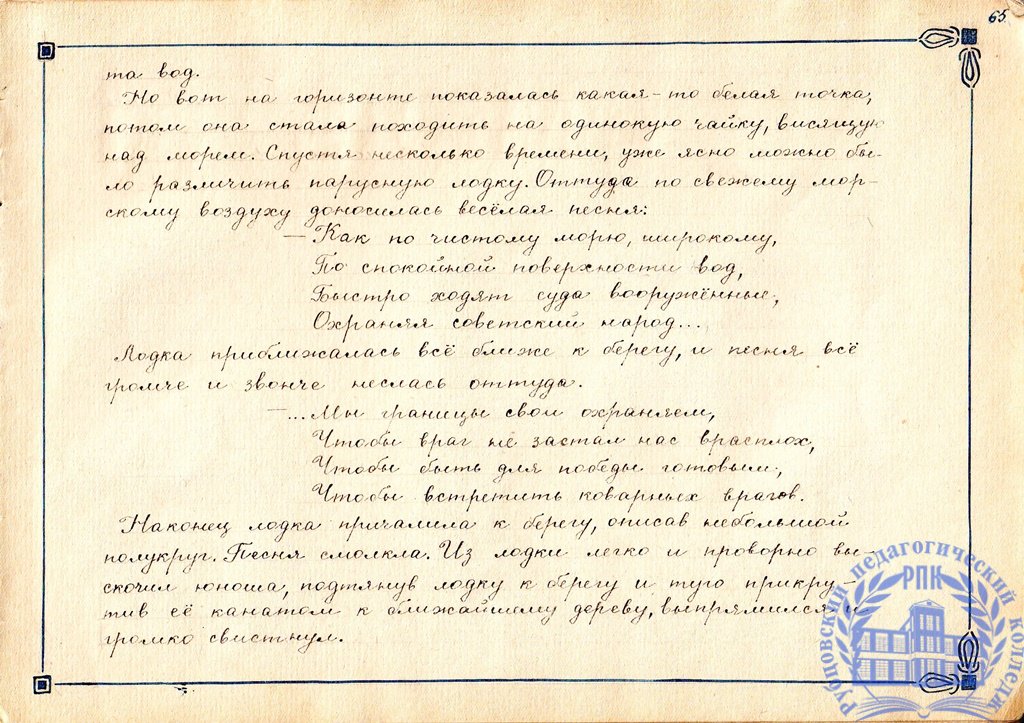 65
та вод.
Но вот на горизонте показалась какая-то белая точка,
потом она стала походить на одинокую чайку, висящую
над морем. Спустя несколько времени, уже ясно можно бы-
ло различить парусную лодку. Оттуда по свежему мор-
скому воздуху доносилась весёлая песня:
— Как по чистому морю, широкому,
По спокойной поверхности вод,
Быстро ходят суда вооружённые,
Охраняя советский народ...
Лодка приближалась всё ближе к берегу, и песня всё
громче и звонче неслась оттуда.
— ...Мы границы свои охраняем,
Чтобы враг не застал нас врасплох,
Чтобы быть для победы готовым,
Чтобы встретить коварных врагов.
Наконец лодка причалила к берегу, описав небольшой
полукруг. Песня смолкла. Из лодки легко и проворно вы-
скочил юноша, подтянув лодку к берегу и туго прикру-
тив её канатом к ближайшему дереву, выпрямился и
громко свистнул.
Рубцовский педагогический колледж
РПК